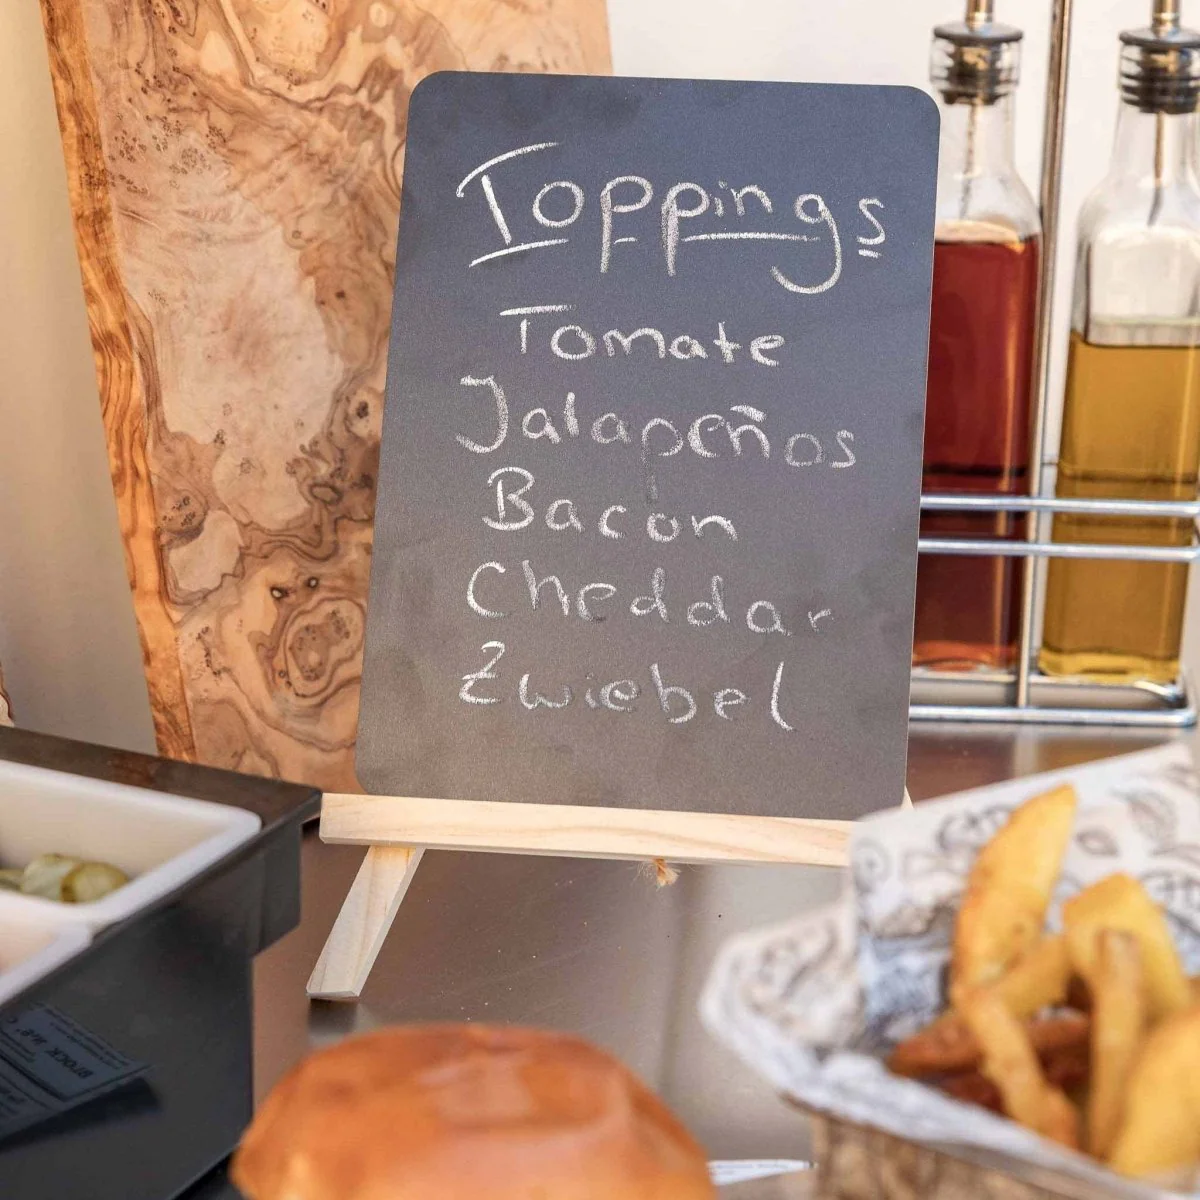 Toppings
Tomate
Jalapeños
Bacon
Cheddar
Zwiebel